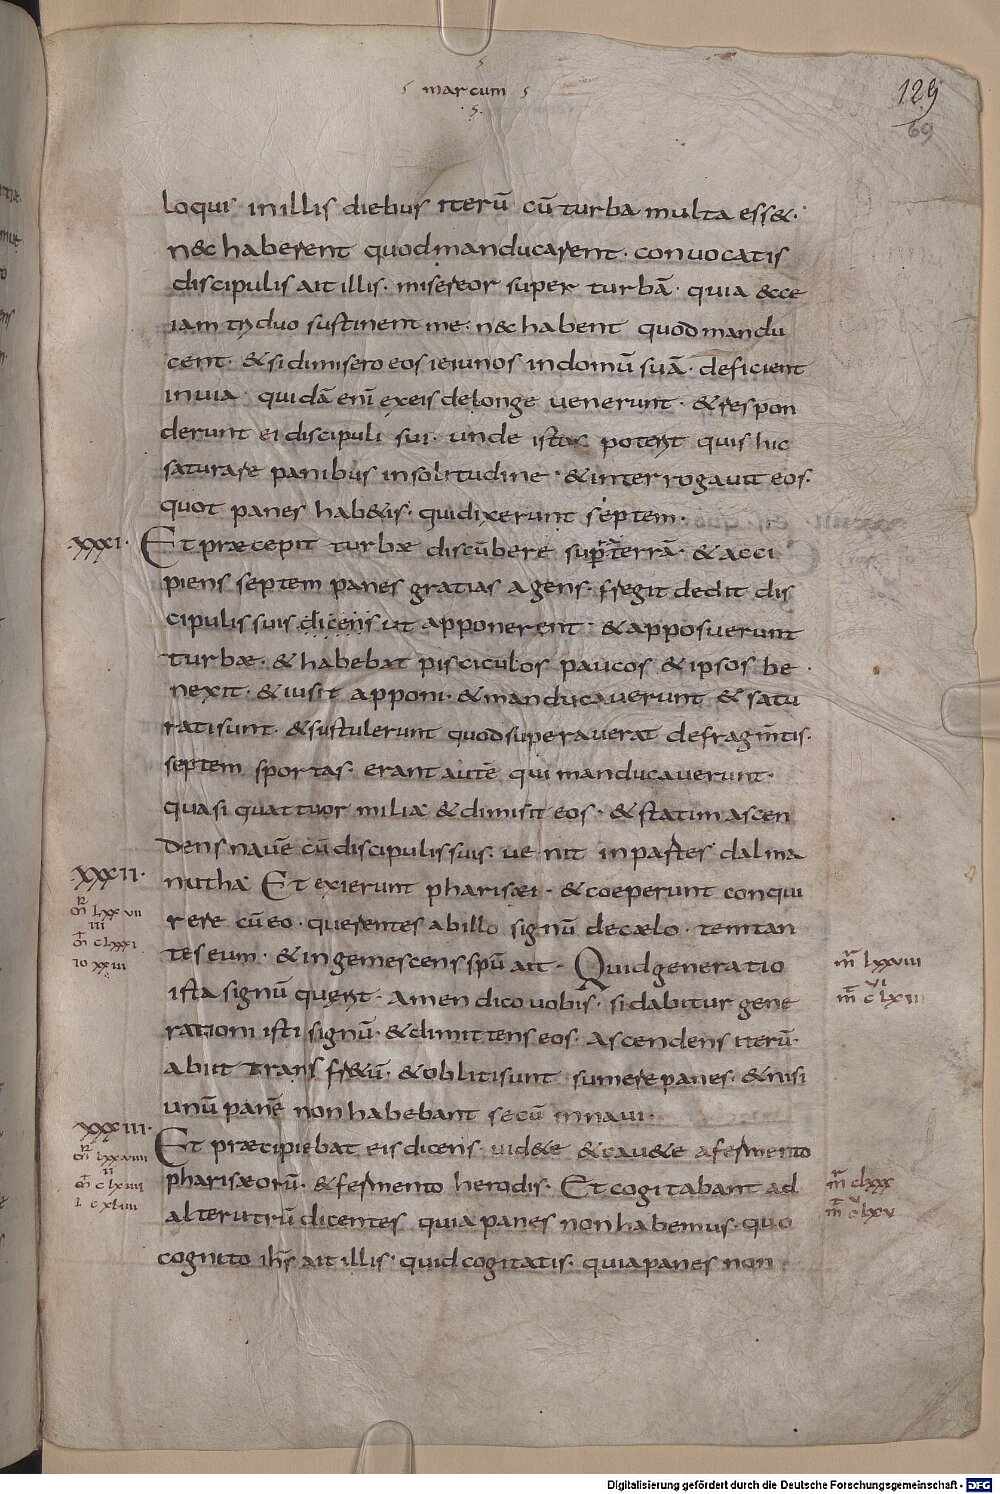 marcum
129
69
loqui in illis diebus iterū cū turba multa ess&.
n&c haberent quod manducarent. convocatis
discipulis ait illis. misereor super turbā. quia &cce
iam triduo sustinent me. n&c habent quod mandu
cent. & si dimisero eos ieiunos in domū suā. deficient
in via. quidā enī ex eis de longe venerunt. & respon
derunt ei discipuli sui. unde istos poterit quis hic
saturare panibus in solitudine. & interrogavit eos.
quot panes hab&is. qui dixerunt septem.
XXXI. Et præcepit turbæ discūbere supra terrā. & acci
piens septem panes gratias agens. fregit dedit dis
cipulis suis dicens ut apponerent. & apposuerunt
turbæ. & habebat pisciculos paucos & ipsos be
nexit. & iusit apponi. & manducaverunt & satu
rati sunt. & sustulerunt quod superaverat de fragmtis.
septem sportas. erant autē qui manducaverunt.
quasi quattuor milia & dimisit eos. & statim ascen
dens navē cū discipulis suis. venit in partes dalma
XXXII. nutha Et exierunt pharisæi. & coeperunt conqui
rere cū eo. querentes ab illo signū de cælo. temtan
tes eum. & ingemescens spū ait. Quid generatio
ista signū querit. Amen dico vobis. si dabitur gene
rationi isti signū. & dimittens eos. Ascendens iterū.
abiit trans fr&ū. & obliti sunt sumere panes. & nisi
unū panē non habebant secū in navi.
XXXIII. Et præcipiebat eis dicens. vid&e & cav&e a fermento
pharisæorū. & fermento herodis. Et cogitabant ad
alterutrū dicentes quia panes non habemus. quo
cognito ihs ait illis. quid cogitatis. quia panes non
m̄ lxxviii
vi
m̄ c lxiii
m̄ clxxx
m̄ c lxv
Digitalisierung gefördert durch die Deutsche Forschungsgemeinschaft - DFG